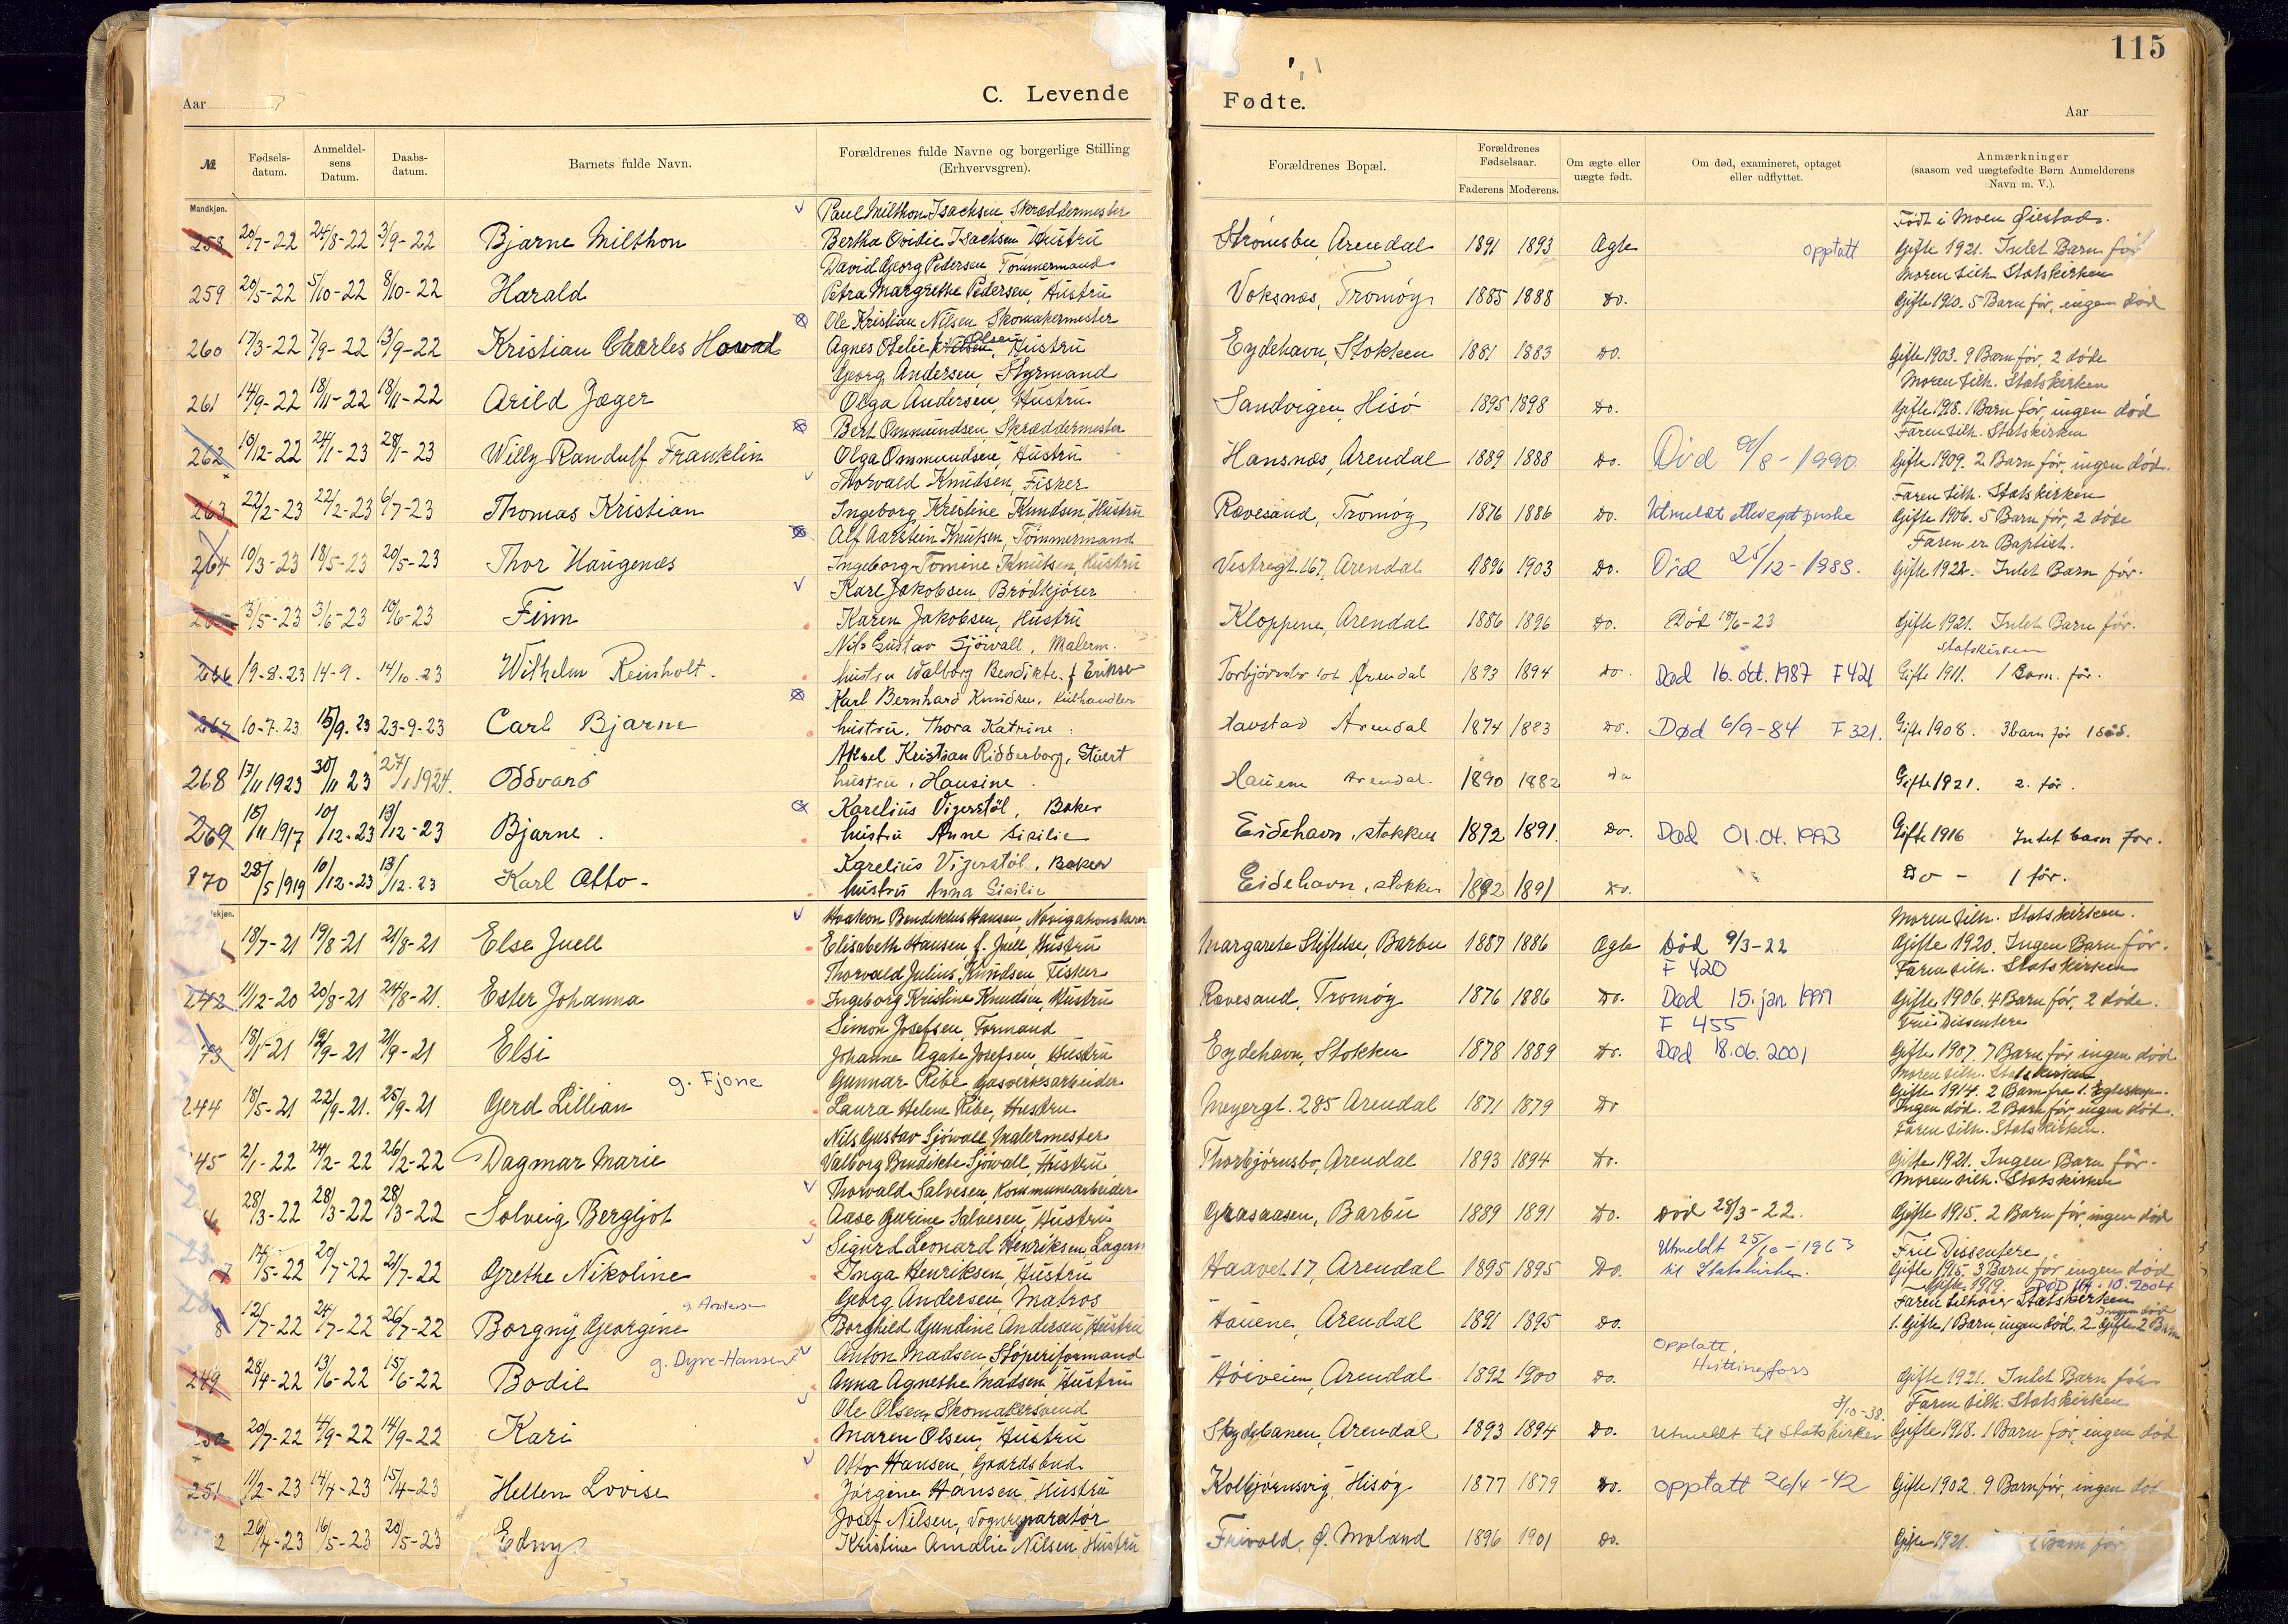 115
Aar
C. Levende
Fødte.
Aar
№
Fødsels-datum.
Anmeldelsens Datum.
Daabs-datum.
Barnets fulde Navn.
Forældrenes fulde Navne og borgerlige Stilling (Erhvervsgren).
Forældrenes Bopæl.
Forældrenes Fødselsaar.
Faderens
Moderens.
Om ægte eller uægte født.
Om død, examineret, optaget eller udflyttet.
Anmærkninger (saasom ved uægtefødte Børn Anmelderens Navn m. V.).
Mandkjøn.
Paul Milthon Isachsen Skræddermester
Født i Moen Øiestad.
258 20/7-22 24/8-22 3/9-22 Bjarne Milthon Bertha Ovidie Isachsen Hustru Strömsbu, Arendal 1891 1893 Ægte opptatt Gifte 1921. Intet Barn før
David Georg Pedersen Tømmermand
Moren tilh. Statskirken
259 20/5-22 5/10-22 8/10-22 Harald Petra Margrethe Pedersen, Hustru Voksnæs, Tromøy 1885 1888 Do. Gifte 1910. 5 Barn før, ingen død
Ole Kristian Nilsen Skomakermester
260 17/3-22 7/9-22 13/9-22 Kristian Charles Agnes Otelie Olsen, Hustru Eydehavn, Stokken 1881 1883 Do. Gifte 1903. 9 Barn før, 2 døde
Georg Andersen, Styrmand
Moren tilh. Statskirken
261 14/9-22 18/11-22 18/11-22 Arild Jæger Olga Andersen, Hustru Sandvigen, Hisö 1895 1898 Do. Gifte 1918. 1 Barn før, ingen død
Bert Ommundsen, Skræddermester
Faren tilh. Statskirken
262 10/12-22 24/1-23 28/1-23 Willy Randulf Franklin Olga Ommundsen, Hustru Hansnæs, Arendal 1889 1888 Do. Død /8-1990 Gifte 1909. 2 Barn før, ingen død.
Thorvald Knudsen, Fisker
Faren tilh. Statskirken
263 22/2-23 22/2-23 6/7-23 Thomas Kristian Ingeborg Kristine Knudsen, Hustru Rævesand, Tromøy 1876 1886 Do. Utmeldt etter eget ønske Gifte 1906. 5 Barn før, 2 døde
Alf Aarstein Knutsen, Tømmermand
Faren er Baptist.
264 10/3-23 18/5-23 20/5-23 Thor Haugenæs Ingeborg Tomine Knutsen, Hustru Vestregt. 167, Arendal 1896 1903 Do. Død 25/12-1988. Gifte 1922. Intet Barn før.
Karl Jakobsen, Brødkjører
3/5-23 3/6-23 10/6-23 Finn Karen Jakobsen, Hustru Kloppene, Arendal 1886 1896 Do. Død 18/6-23 Gifte 1921. Intet Barn før.
Nils Gustav Sjövall, Malerm.
Statskirken
266 19-8-23 14-9. 14/10-23 Wilhelm Reinholt. hustru Valborg Bendikte, Arendal 1893 1894 Do. Død 16. okt. 1987 F 421 Gifte 1911. 1 Barn før.
Karl Bernhard Knudsen, Kulhandler
267 10-7-23 15/9. 23 23-9-23 Carl Bjarne hustru, Thora Katrine Havstad Arendal 1874 1883 Do. Død 6/9-84 F 321. Gifte 1908. 3 barn før 1 død.
Aksel Kristian Ridderborg, Stuert
268 17/11 1923 30/11 23 27/1 1924. Oddvard hustru, Hansine Arendal. 1890 1882 Do Gifte 1921. 2. før.
Karelius Vigerstøl, Baker
269 15/11 1917 10/12-23 13/12-23 Bjarne. hustru Anne Sisilie Eidehavn, Stokken 1892 1891. Do. Død 01.04.1993 Gifte 1916 Intet barn før.
Karelius Vigerstøl, Baker
270 28/5 1919 10/12-23 13/12-23 Karl Otto- hustru Anna Sisilie Eidehavn, Stokken 1892 1891 Do. Do - 1 før.
Haakon Bendiktus Hansen, Navigationslærer
Moren tilh. Statskirken.
18/7-21 19/8-21 21/8-21 Else Juell Elisabeth Hansen, f. Juell, Hustru Margarete Stiftelse, Barbu 1887 1886 Ægte Død 9/3-22 Gifte 1920. Ingen Barn før.
Thorvald Julius Knudsen, Fisker
F 420
Faren tilh. Statskirken
242 11/12-20 20/8-21 24/8-21. Ester Johanna Ingeborg Kristine Knudsen, Hustru Rævesand, Tromøy 1876 1886 Do. Død 15. jan 1999 Gifte 1906. 4 Barn før, 2 døde.
Simon Josefsen, Formand
F 455
Frie Dissentere
18/1-21 19/9-21 21/9-21 Elsi Johanne Agate Josefsen, Hustru Eydehavn, Stokken 1878 1889 Do. Død 18.06.2001 Gifte 1907. 7 Barn før ingen død
g. Fjone
Gunnar Ribe Gasverksarbeider
Moren tilh. Statskirken
Gifte 1914. 2 Barn fra 1. Egteskap.
244 18/5-21 22/9-21. 25/9-21 Gerd Lillian Laura Helene Ribe, Hustru Meyergt. 285 Arendal 1871 1879 Do Ingen død. 2 Barn før, ingen død.
Nils Gustav Sjövall, Malermester
Faren tilh. Statskirken.
45 2/1-22 24/2-22 26/2-22 Dagmar Marie Valborg Bendikte Sjövall, Hustru Thorbjørnsbo, Arendal 1893 1894 Do. Gifte 1921. Ingen Barn før.
Thorvald Salvesen, Kommunearbeider
Moren tilh. Statskirken
28/3-22 28/3-22 28/3-22 Solveig Bergljot Aase Gurine Salvesen, Hustru Græsaasen, Barbu 1889 1891 Do. Død 28/3-22. Gifte 1915. 2 Barn før, ingen død
Sigurd Leonard Henriksen,
Utmeldt 25/10-1963
Frie Dissentere,
17/5-22 20/7-22 21/7-22 Grethe Nikoline Inga Henriksen, Hustru Haavet 17, Arendal 1895 1895 Do. til Statskirken. 3 Barn før ingen død
Georg Andersen, Matros
Gifte 1919. DØD 14.10.2004
Faren tilhører Statskirken
g. Andersen
12/7-22 24/7-22 26/7-22 Borgny Georgine Borghild Gundine Andersen, Hustru Hauene, Arendal 1891 1895 Do. 1. Gifte 1 Barn, ingen død. 2 Gifte 2 Barn
Ingen død
g. Dyre-Hansen
Anton Madsen, Støperiformand
Opptatt,
Hvittingfoss
249 28/4-22 13/6-22 15/6-22 Bodil Anna Agnethe Madsen, Hustru Høiveien, Arendal 1892 1900 Do. Gifte 1921. Intet Barn før
Ole Olsen, Skomakersvend
3/10-38.
Faren tilh. Statskirken
20/7-22 4/9-22 14/9-22 Kari Maren Olsen, Hustru Skydebanen, Arendal 1893 1894 Do. Utmeldt til Statskirken Gifte 1918. 1 Barn før, ingen død
Otto Hansen, Gaardsbud
251 11/2-23 14/4-23 15/4-23 Hellen Lovise Jørgene Hansen, Hustru Kolbjørnsvig, Hisøy 1877 1879 Do. opptatt 26/4-42 Gifte 1902. 9 Barn før, ingen død
Josef Nilsen, Vognreparatør
2 26/4-23 16/5-23 20/5-23 Edny Kristine Amalie Nilsen, Hustru Frivold, Ø. Moland 1896 1901 Do. Gifte 1921. 1 Barn før